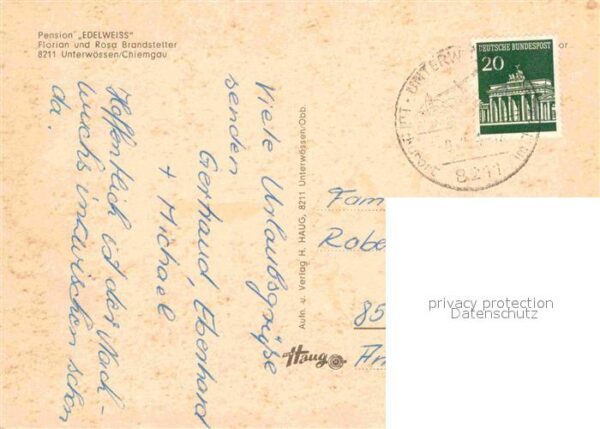 Pension "EDELWEISS"
Florian und Rosa Brandstetter
8211 Unterwössen/Chiemgau
Viele Urlaubsgrüße
senden
Gerhaud, Eberhard
+ Michael
Hoffentlich ist der Nach-
wuchs inzwischen schon
da.
Aufn. u. Verlag H. HAUG, 8211 Unterwössen/Obb.
Haug
DEUTSCHE BUNDESPOST
20
UNTERW
8211
or
Fam
Robe
85
privacy protection
Datenschutz